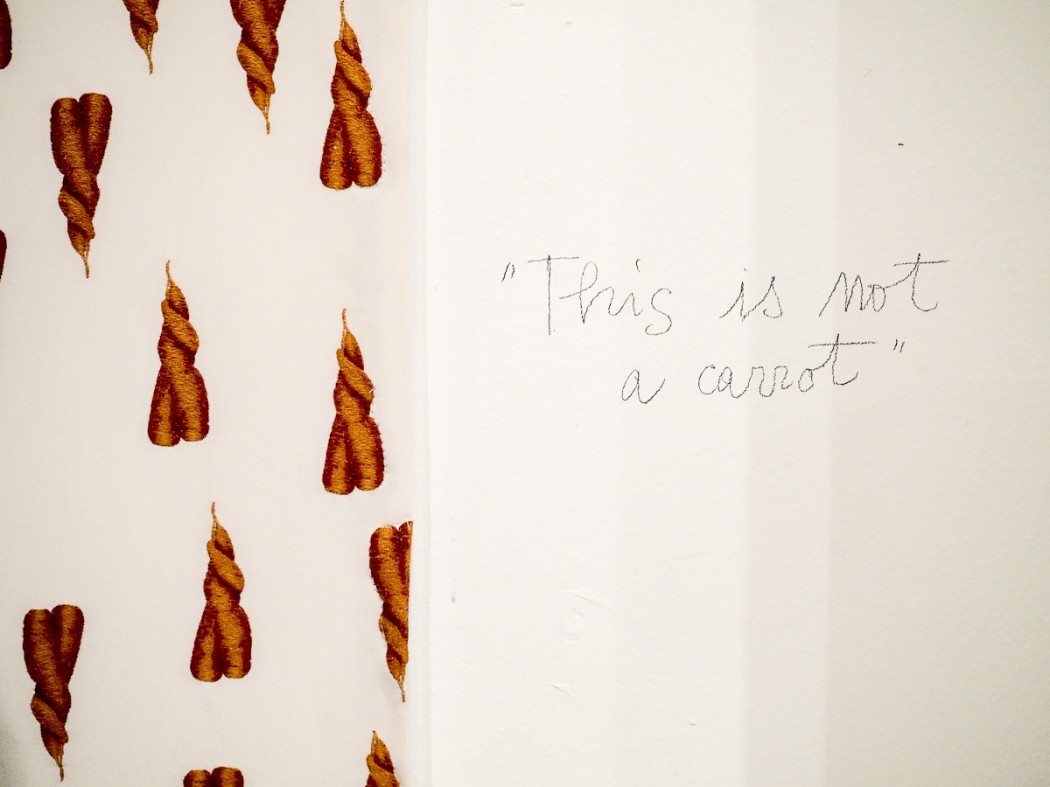 "This is not
a carrot"